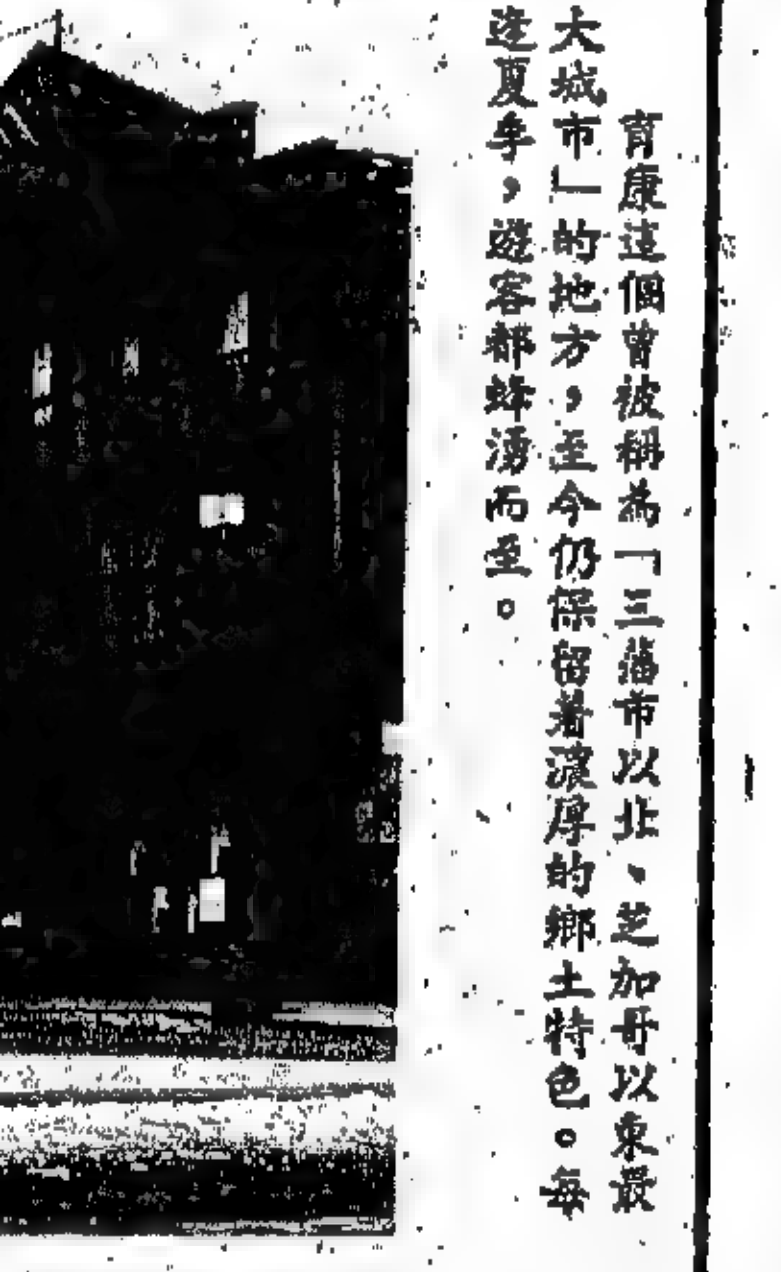 育康這個曾被稱為「三藩市以北、芝加哥以東最
大城市」的地方，至今仍保留着濃厚的鄉土特色。每
逢夏季，遊客都蜂湧而至。